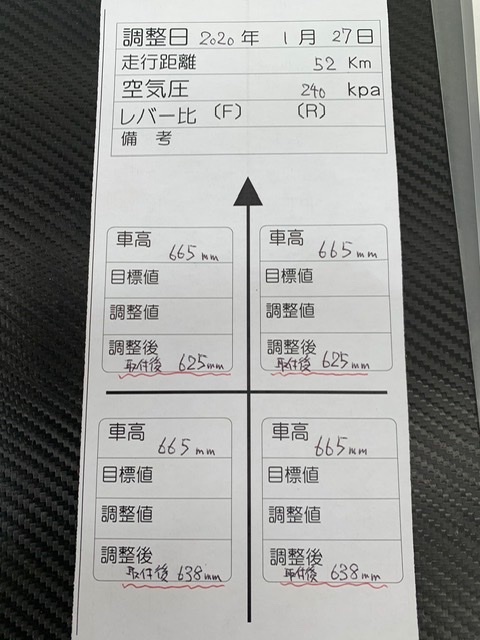 調整日 2020 年 1 月 27 日
走行距離 52 Km
空気圧 240 kpa
レバー比 (F) (R)
備 考
車高 665mm
目標値
調整値
調整後
取付後 625mm
車高 665mm
目標値
調整値
調整後
取付後 625mm
車高 665mm
目標値
調整値
調整後
取付後 638mm
車高 665mm
目標値
調整値
調整後
取付後 638mm